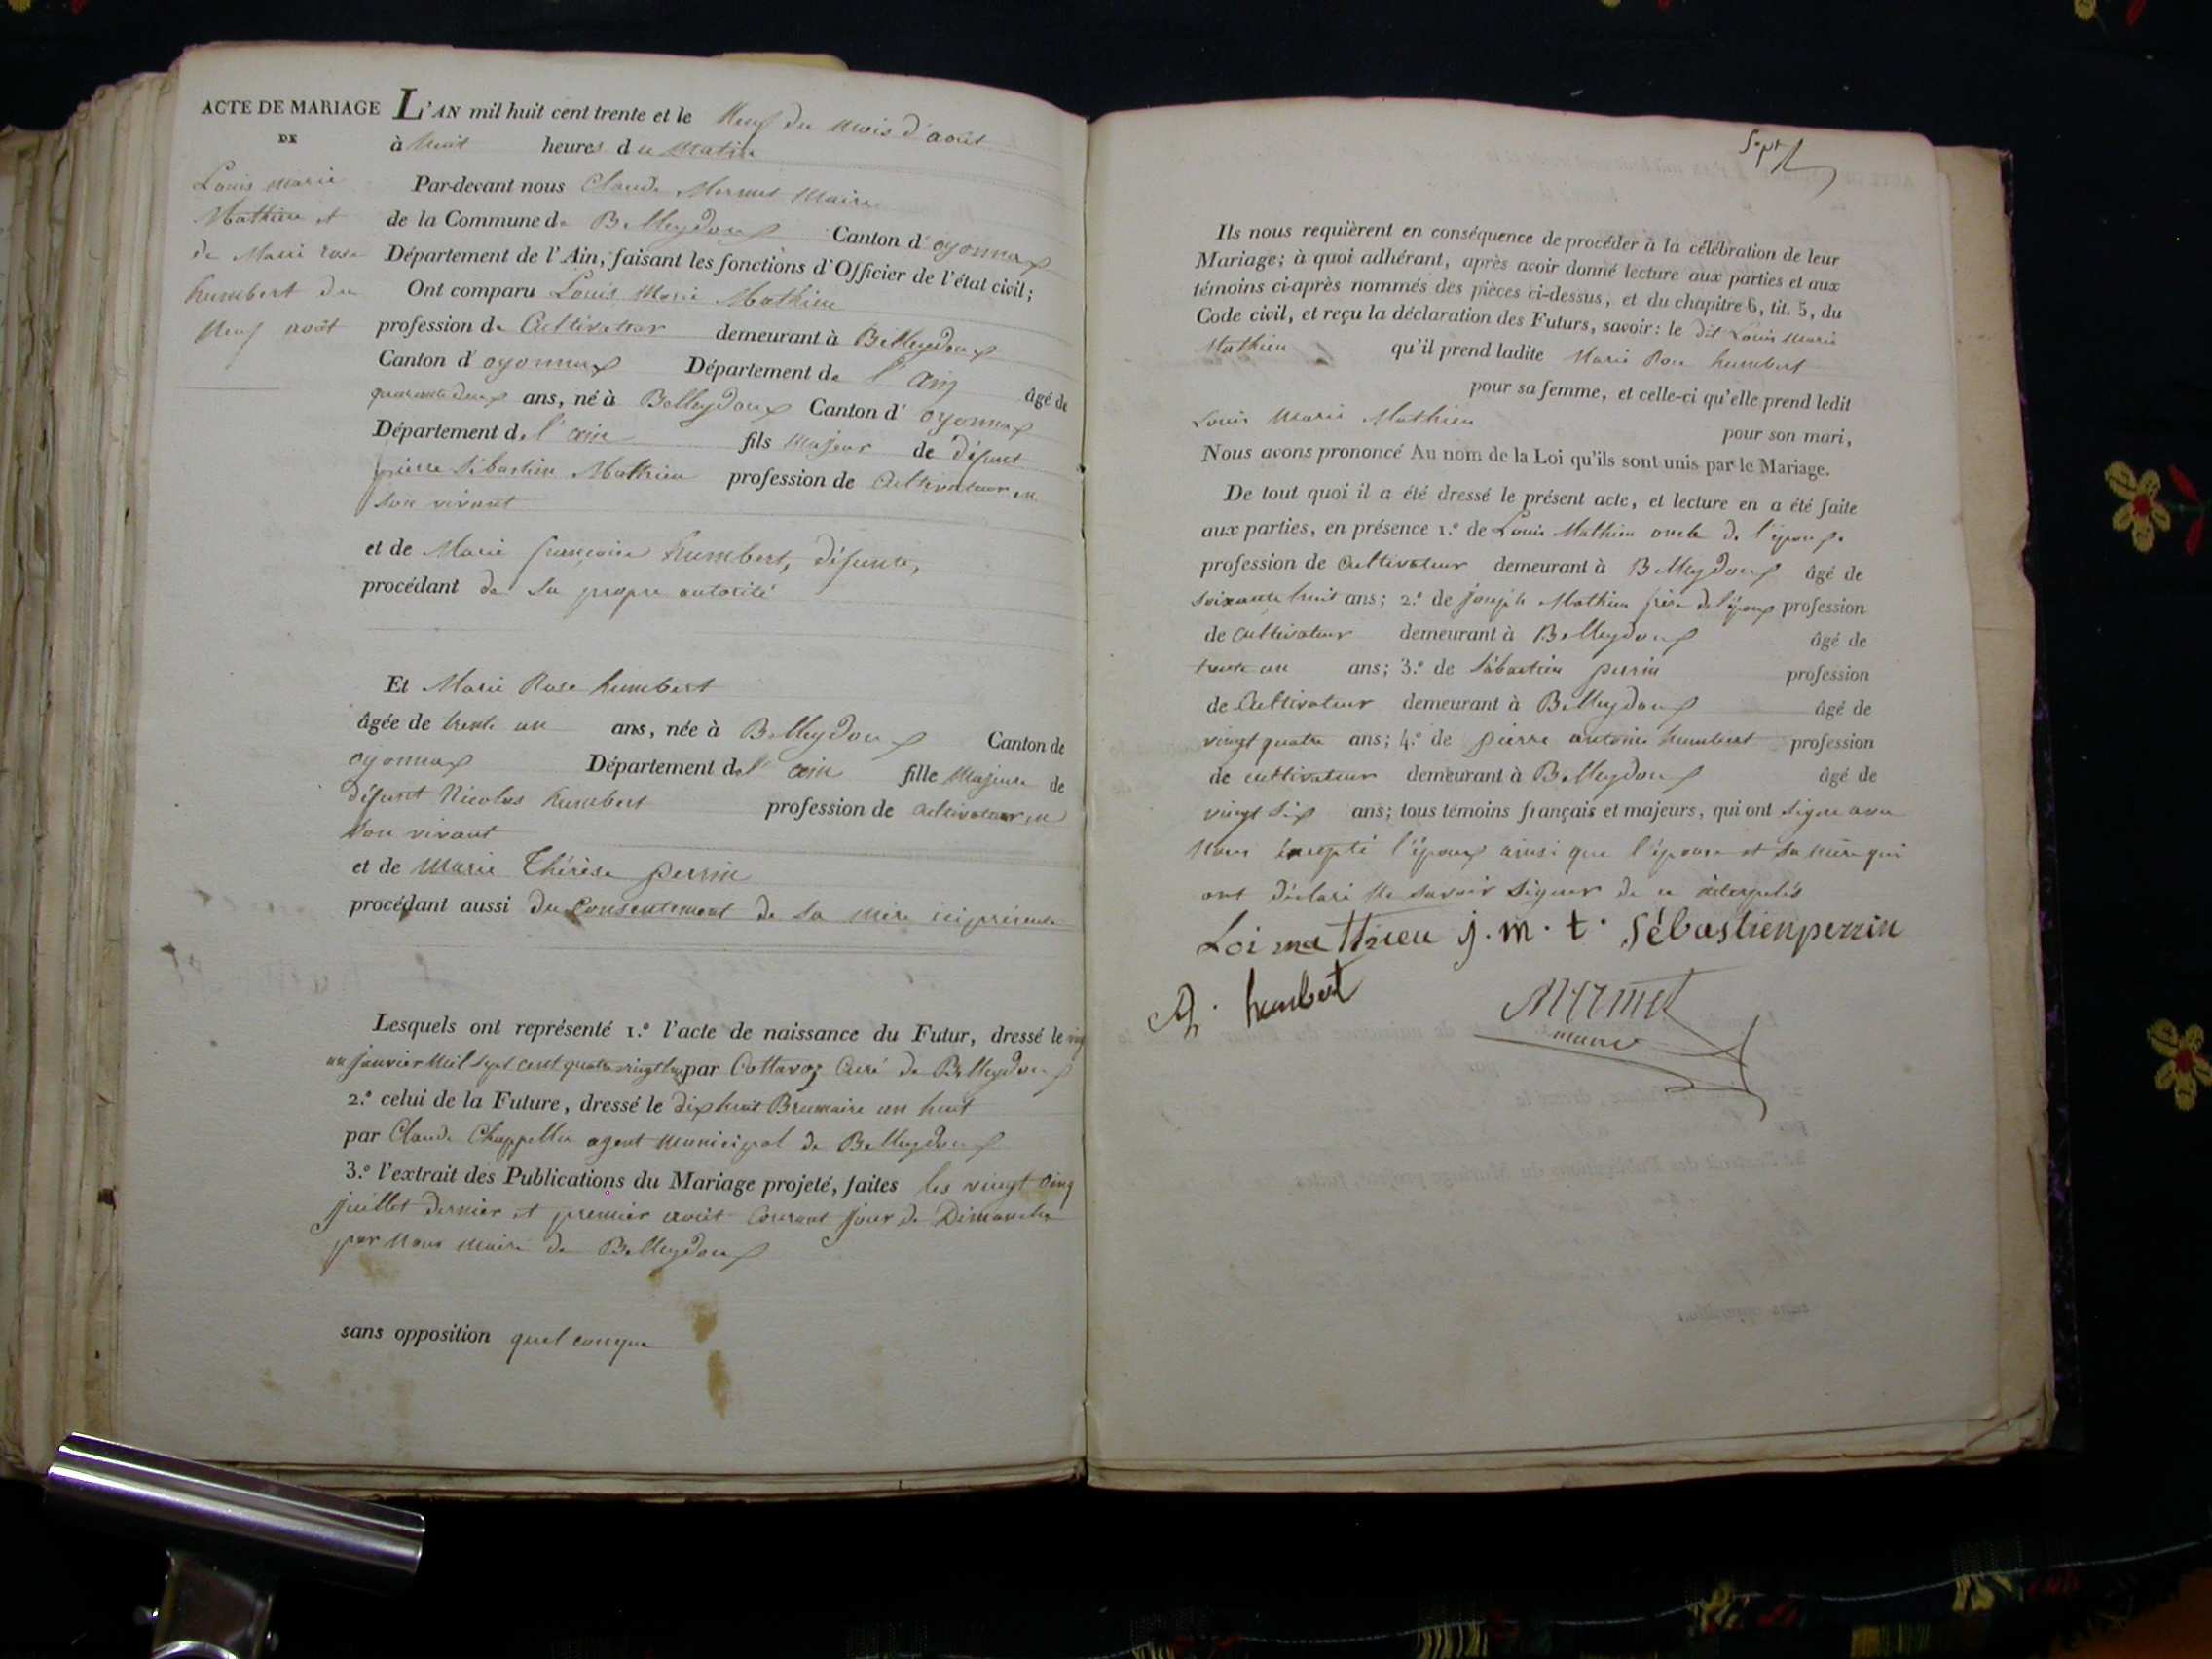 ACTE DE MARIAGE
DE
Louis marie
Mathieu et
de Marie rose
humbert du
Neuf août
L'AN mil huit cent trente et le Neuf du mois d'août
à huit heures du matin
Par-devant nous Claude Mermet Maire
de la Commune de Belleydoux Canton d'oyonnax
Département de l'Ain, faisant les fonctions d'Officier de l'état civil;
Ont comparu Louis Marie Mathieu
profession de Cultivateur demeurant à Belleydoux
Canton d'oyonnax Département de l'ain âgé de
quarante deux ans, né à Belleydoux Canton d'oyonnax
Département de l'ain fils majeur de défunt
pierre Sébastien Mathieu profession de Cultivateur en
son vivant
et de Marie françoise humbert, défunte,
procédant de sa propre autorité
Et Marie Rose humbert
âgée de trente un ans, née à Belleydoux Canton de
oyonnax Département de l'ain fille Majeure de
défunt Nicolas humbert profession de cultivateur en
son vivant
et de Marie Thérèse perrin
procédant aussi du Consentement de sa mère ici présente
Lesquels ont représenté 1.º l'acte de naissance du Futur, dressé le
un janvier mil sept cent quatre vingt par Cottavoz Curé de Belleydoux
2.º celui de la Future, dressé le dix huit Brumaire an huit
par Claude Chappellu agent municipal de Belleydoux
3.º l'extrait des Publications du Mariage projeté, faites les vingt cinq
juillet dernier et premier août Courant jour de Dimanche
par Nous maire de Belleydoux
sans opposition quelconque
Sept
Ils nous requièrent en conséquence de procéder à la célébration de leur
Mariage; à quoi adhérant, après avoir donné lecture aux parties et aux
témoins ci-après nommés des pièces ci-dessus, et du chapitre 6, tit. 5, du
Code civil, et reçu la déclaration des Futurs, savoir: le dit Louis Marie
Mathieu qu'il prend ladite Marie Rose humbert
pour sa femme, et celle-ci qu'elle prend ledit
Louis Marie Mathieu pour son mari,
Nous avons prononcé Au nom de la Loi qu'ils sont unis par le Mariage.
De tout quoi il a été dressé le présent acte, et lecture en a été faite
aux parties, en présence 1.º de Louis Mathieu oncle de l'époux
profession de cultivateur demeurant à Belleydoux âgé de
soixante huit ans; 2.º de joseph Mathieu frère de l'époux profession
de cultivateur demeurant à Belleydoux âgé de
trente un ans; 3.º de Sébastien perrin profession
de Cultivateur demeurant à Belleydoux âgé de
vingt quatre ans; 4.º de pierre antoine humbert profession
de cultivateur demeurant à Belleydoux âgé de
vingt six ans; tous témoins français et majeurs, qui ont signé avec
Nous excepté l'époux ainsi que l'épouse et sa mère qui
ont déclaré ne savoir signer de ce interpelés
Loi mathieu j. m. t. Sébastien perrin
humbert
Mermet
maire